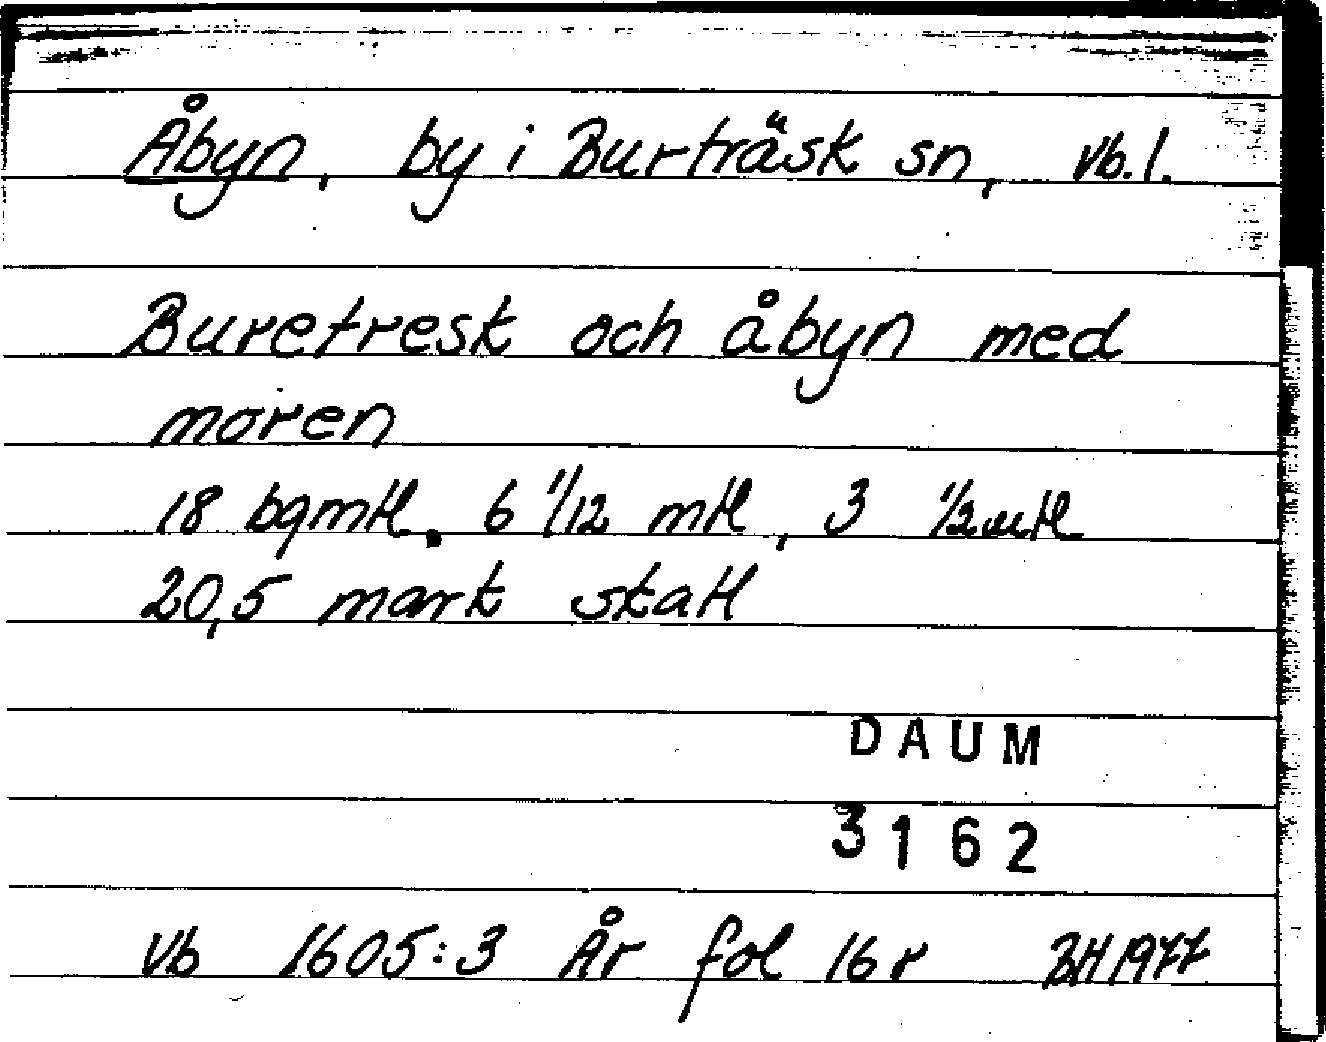 Åbyn, by i Burträsk sn, Vb. l.
Buretresk och åbyn med
moren
18 bgmtl. 6 1/12 mtl, 3 1/2 mtl
20,5 mark skatt
DAUM
3162
Vb 1605:3 År fol 16 r BH 1977